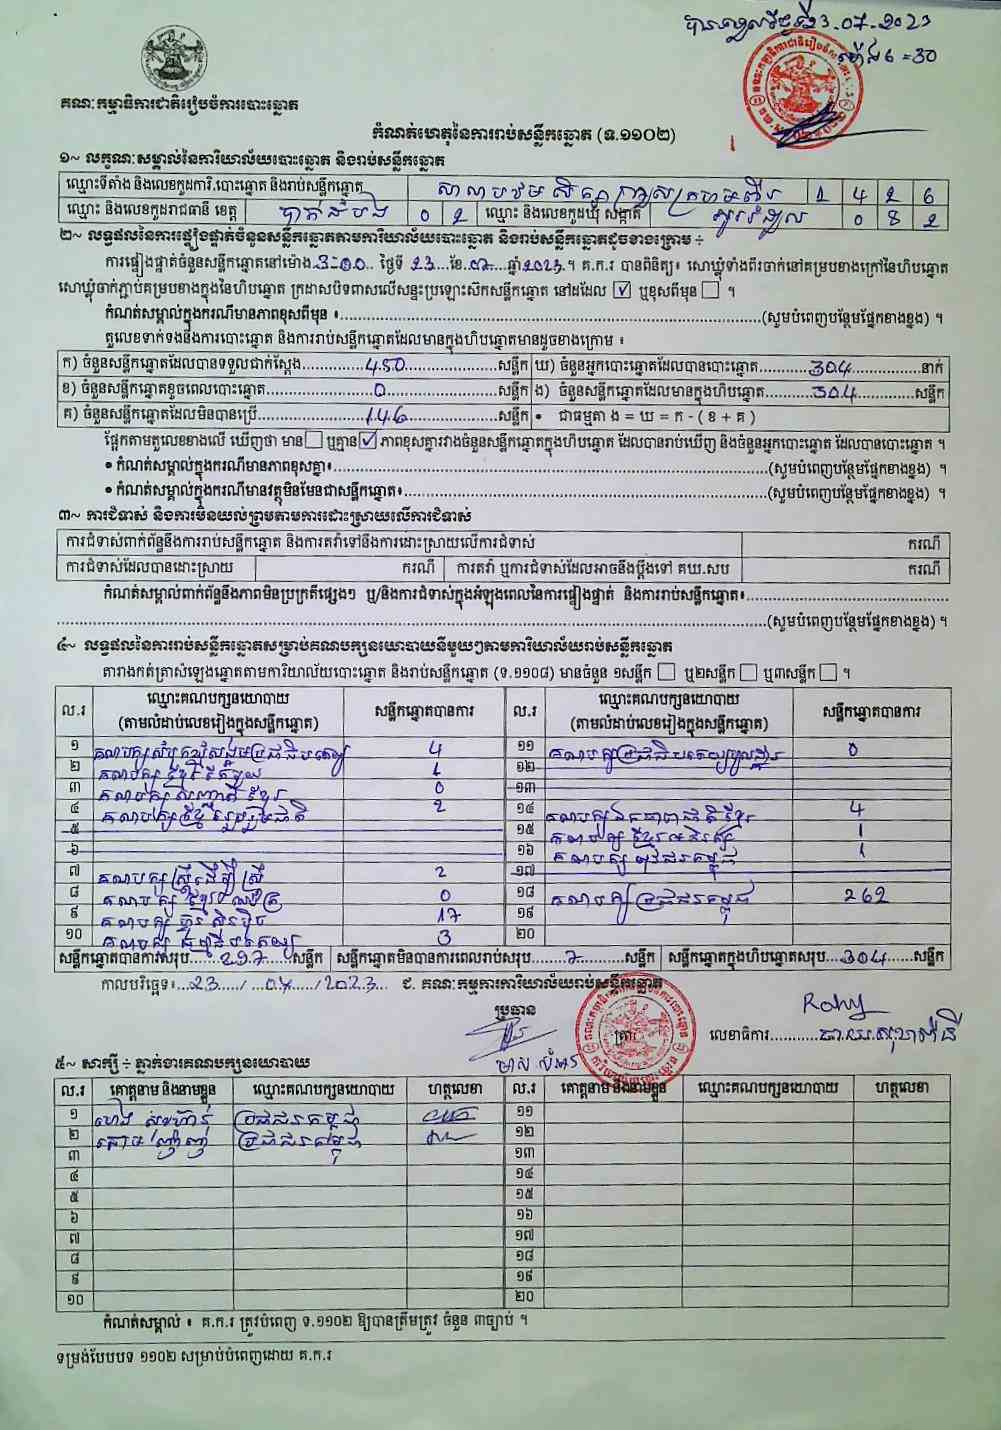 បានទទួលថ្ងៃទី 23-07-2023
ម៉ោង 6=30
គណៈកម្មាធិការជាតិរៀបចំការបោះឆ្នោត
កំណត់ហេតុនៃការរាប់សន្លឹកឆ្នោត (ទ.១១០២)
១~ លក្ខណៈសម្គាល់នៃការិយាល័យបោះឆ្នោត និងរាប់សន្លឹកឆ្នោត
ឈ្មោះទីតាំង និងលេខកូដការិ.បោះឆ្នោត និងរាប់សន្លឹកឆ្នោត សាលាបឋមសិក្សា 1 4 2 6
ឈ្មោះ និងលេខកូដរាជធានី ខេត្ត បាត់ដំបង 0 2 ឈ្មោះ និងលេខកូដឃុំ សង្កាត់ 0 8 2
២~ លទ្ធផលនៃការផ្ទៀងផ្ទាត់ចំនួនសន្លឹកឆ្នោតតាមការិយាល័យបោះឆ្នោត និងរាប់សន្លឹកឆ្នោតដូចខាងក្រោម ÷
ការផ្ទៀងផ្ទាត់ចំនួនសន្លឹកឆ្នោតនៅម៉ោង 3-00 ថ្ងៃទី 23 ខែ 07 ឆ្នាំ 2023 ។ គ.ក.រ បានពិនិត្យ៖ សោឃ្លុំទាំងពីរចាក់នៅគម្របខាងក្រៅនៃហិបឆ្នោត
សោឃ្លុំចាក់ភ្ជាប់គម្របខាងក្នុងនៃហិបឆ្នោត ក្រដាសបិទពាសលើសន្ទះប្រឡោះស៊កសន្លឹកឆ្នោត នៅដដែល ☑ ឬខុសពីមុន ☐ ។
កំណត់សម្គាល់ក្នុងករណីមានភាពខុសពីមុន ៖ (សូមបំពេញបន្ថែមផ្នែកខាងខ្នង) ។
តួលេខទាក់ទងនឹងការបោះឆ្នោត និងការរាប់សន្លឹកឆ្នោតដែលមានក្នុងហិបឆ្នោតមានដូចខាងក្រោម ៖
ក) ចំនួនសន្លឹកឆ្នោតដែលបានទទួលជាក់ស្តែង 450 សន្លឹក ឃ) ចំនួនអ្នកបោះឆ្នោតដែលបានបោះឆ្នោត 304 នាក់
ខ) ចំនួនសន្លឹកឆ្នោតខូចពេលបោះឆ្នោត 0 សន្លឹក ង) ចំនួនសន្លឹកឆ្នោតដែលមានក្នុងហិបឆ្នោត 304 សន្លឹក
គ) ចំនួនសន្លឹកឆ្នោតដែលមិនបានប្រើ 146 សន្លឹក • ជាធម្មតា ង = ឃ = ក - ( ខ + គ )
ផ្អែកតាមតួលេខខាងលើ ឃើញថា មាន ☐ ឬគ្មាន ☑ ភាពខុសគ្នារវាងចំនួនសន្លឹកឆ្នោតក្នុងហិបឆ្នោត ដែលបានរាប់ឃើញ និងចំនួនអ្នកបោះឆ្នោត ដែលបានបោះឆ្នោត ។
• កំណត់សម្គាល់ក្នុងករណីមានភាពខុសគ្នា៖ (សូមបំពេញបន្ថែមផ្នែកខាងខ្នង) ។
• កំណត់សម្គាល់ក្នុងករណីមានវត្ថុមិនមែនជាសន្លឹកឆ្នោត៖ (សូមបំពេញបន្ថែមផ្នែកខាងខ្នង) ។
៣~ ការជំទាស់ និងការមិនយល់ព្រមតាមការដោះស្រាយលើការជំទាស់
ការជំទាស់ពាក់ព័ន្ធនឹងការរាប់សន្លឹកឆ្នោត និងការតវ៉ាទៅនឹងការដោះស្រាយលើការជំទាស់ ករណី
ការជំទាស់ដែលបានដោះស្រាយ ករណី ការតវ៉ា ឬការជំទាស់ដែលអាចនឹងប្តឹងទៅ គឃ.សប ករណី
កំណត់សម្គាល់ពាក់ព័ន្ធនឹងភាពមិនប្រក្រតីផ្សេងៗ ឬ/និងការជំទាស់ក្នុងអំឡុងពេលនៃការផ្ទៀងផ្ទាត់ និងការរាប់សន្លឹកឆ្នោត៖
(សូមបំពេញបន្ថែមផ្នែកខាងខ្នង) ។
៤~ លទ្ធផលនៃការរាប់សន្លឹកឆ្នោតសម្រាប់គណបក្សនយោបាយនីមួយៗតាមការិយាល័យរាប់សន្លឹកឆ្នោត
តារាងកត់ត្រាសំឡេងឆ្នោតតាមការិយាល័យបោះឆ្នោត និងរាប់សន្លឹកឆ្នោត (ទ.១១០៨) មានចំនួន ១សន្លឹក ☐ ឬ២សន្លឹក ☐ ឬ៣សន្លឹក ☐ ។
ល.រ ឈ្មោះគណបក្សនយោបាយ (តាមលំដាប់លេខរៀងក្នុងសន្លឹកឆ្នោត) សន្លឹកឆ្នោតបានការ ល.រ ឈ្មោះគណបក្សនយោបាយ (តាមលំដាប់លេខរៀងក្នុងសន្លឹកឆ្នោត) សន្លឹកឆ្នោតបានការ
១ គណបក្សសំបុកឃ្មុំសង្គមប្រជាធិបតេយ្យ 4 ១១ គណបក្សប្រជាធិបតេយ្យមូលដ្ឋាន 0
២ គណបក្ស ខ្មែរតែមួយ 1 ១២
៣ គណបក្ស សញ្ជាតិខ្មែរ 0 ១៣
៤ គណបក្សខ្មែររួបរួមជាតិ 2 ១៤ គណបក្សឯកភាពជាតិខ្មែរ 4
៥ ១៥ គណបក្ស ខ្មែរអភិរក្ស 1
៦ ១៦ គណបក្ស យុវជនកម្ពុជា 1
៧ គណបក្សស្ត្រីដើម្បីស្ត្រី 2 ១៧
៨ គណបក្ស 0 ១៨ គណបក្សប្រជាជនកម្ពុជា 262
៩ គណបក្ស ហ៊្វុនស៊ិនប៉ិច 17 ១៩
១០ គណបក្ស ធម្មាធិបតេយ្យ 3 ២០
សន្លឹកឆ្នោតបានការសរុប 297 សន្លឹក សន្លឹកឆ្នោតមិនបានការពេលរាប់សរុប 7 សន្លឹក សន្លឹកឆ្នោតក្នុងហិបឆ្នោតសរុប 304 សន្លឹក
កាលបរិច្ឆេទ៖ 23 / 07 / 2023 ជ. គណៈកម្មការការិយាល័យរាប់សន្លឹកឆ្នោត
ប្រធាន ត្រា លេខាធិការ
៥~ សាក្សី ÷ ភ្នាក់ងារគណបក្សនយោបាយ
ល.រ គោត្តនាម និងនាមខ្លួន ឈ្មោះគណបក្សនយោបាយ ហត្ថលេខា ល.រ គោត្តនាម និងនាមខ្លួន ឈ្មោះគណបក្សនយោបាយ ហត្ថលេខា
១ ប្រជាជនកម្ពុជា ១១
២ ប្រជាជនកម្ពុជា ១២
៣ ១៣
៤ ១៤
៥ ១៥
៦ ១៦
៧ ១៧
៨ ១៨
៩ ១៩
១០ ២០
កំណត់សម្គាល់ ៖ គ.ក.រ ត្រូវបំពេញ ទ.១១០២ ឱ្យបានត្រឹមត្រូវ ចំនួន ៣ច្បាប់ ។
ទម្រង់បែបបទ ១១០២ សម្រាប់បំពេញដោយ គ.ក.រ